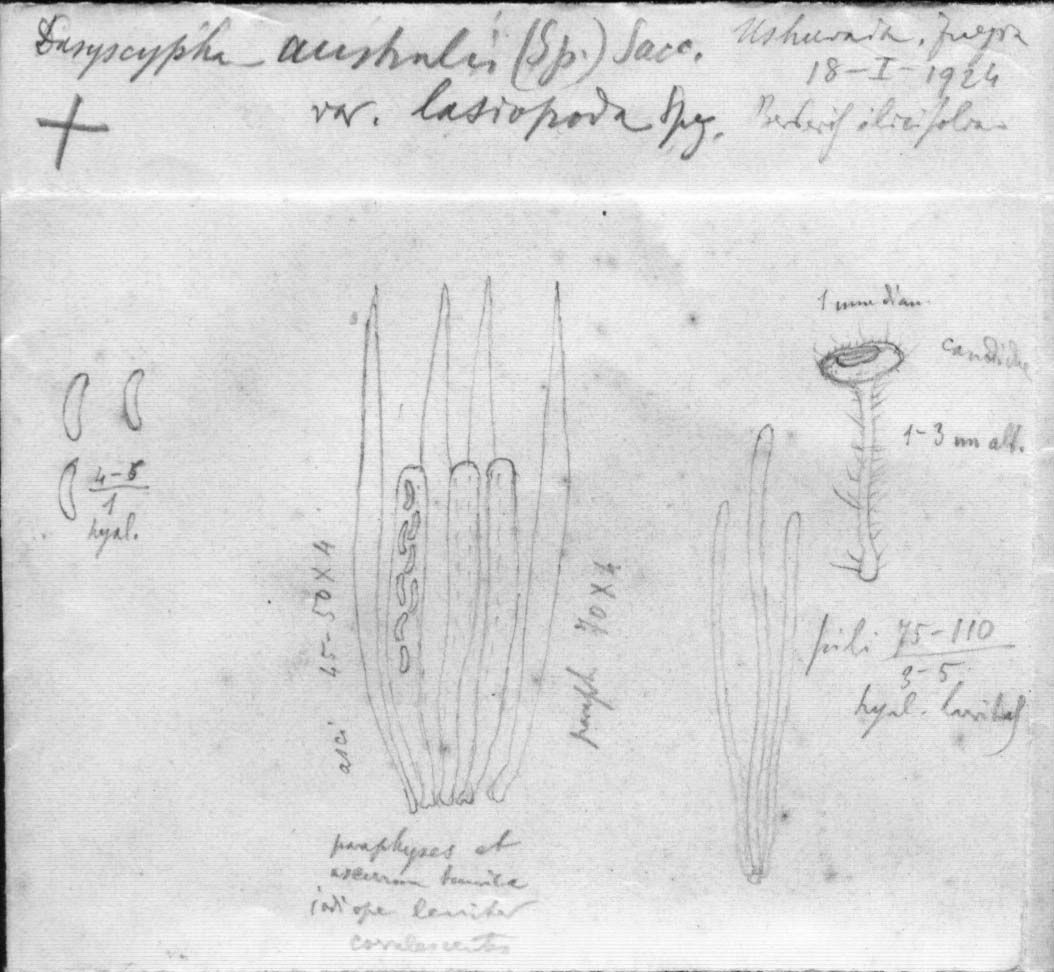 Dasyscypha australis (Sp.) Sacc.
var. lasiopoda Speg.
Ushuaia, Fuegia
18-I-1924
Berberis ilicifolia
1 mm diam.
candida
1-3 mm alt.
4-5
1
hyal.
asci 45-50 X 4
paraph 70 X 4
pili 75-110
3-5
hyal.
paraphyses et
ascorum
iodi ope leniter
coerulescentes